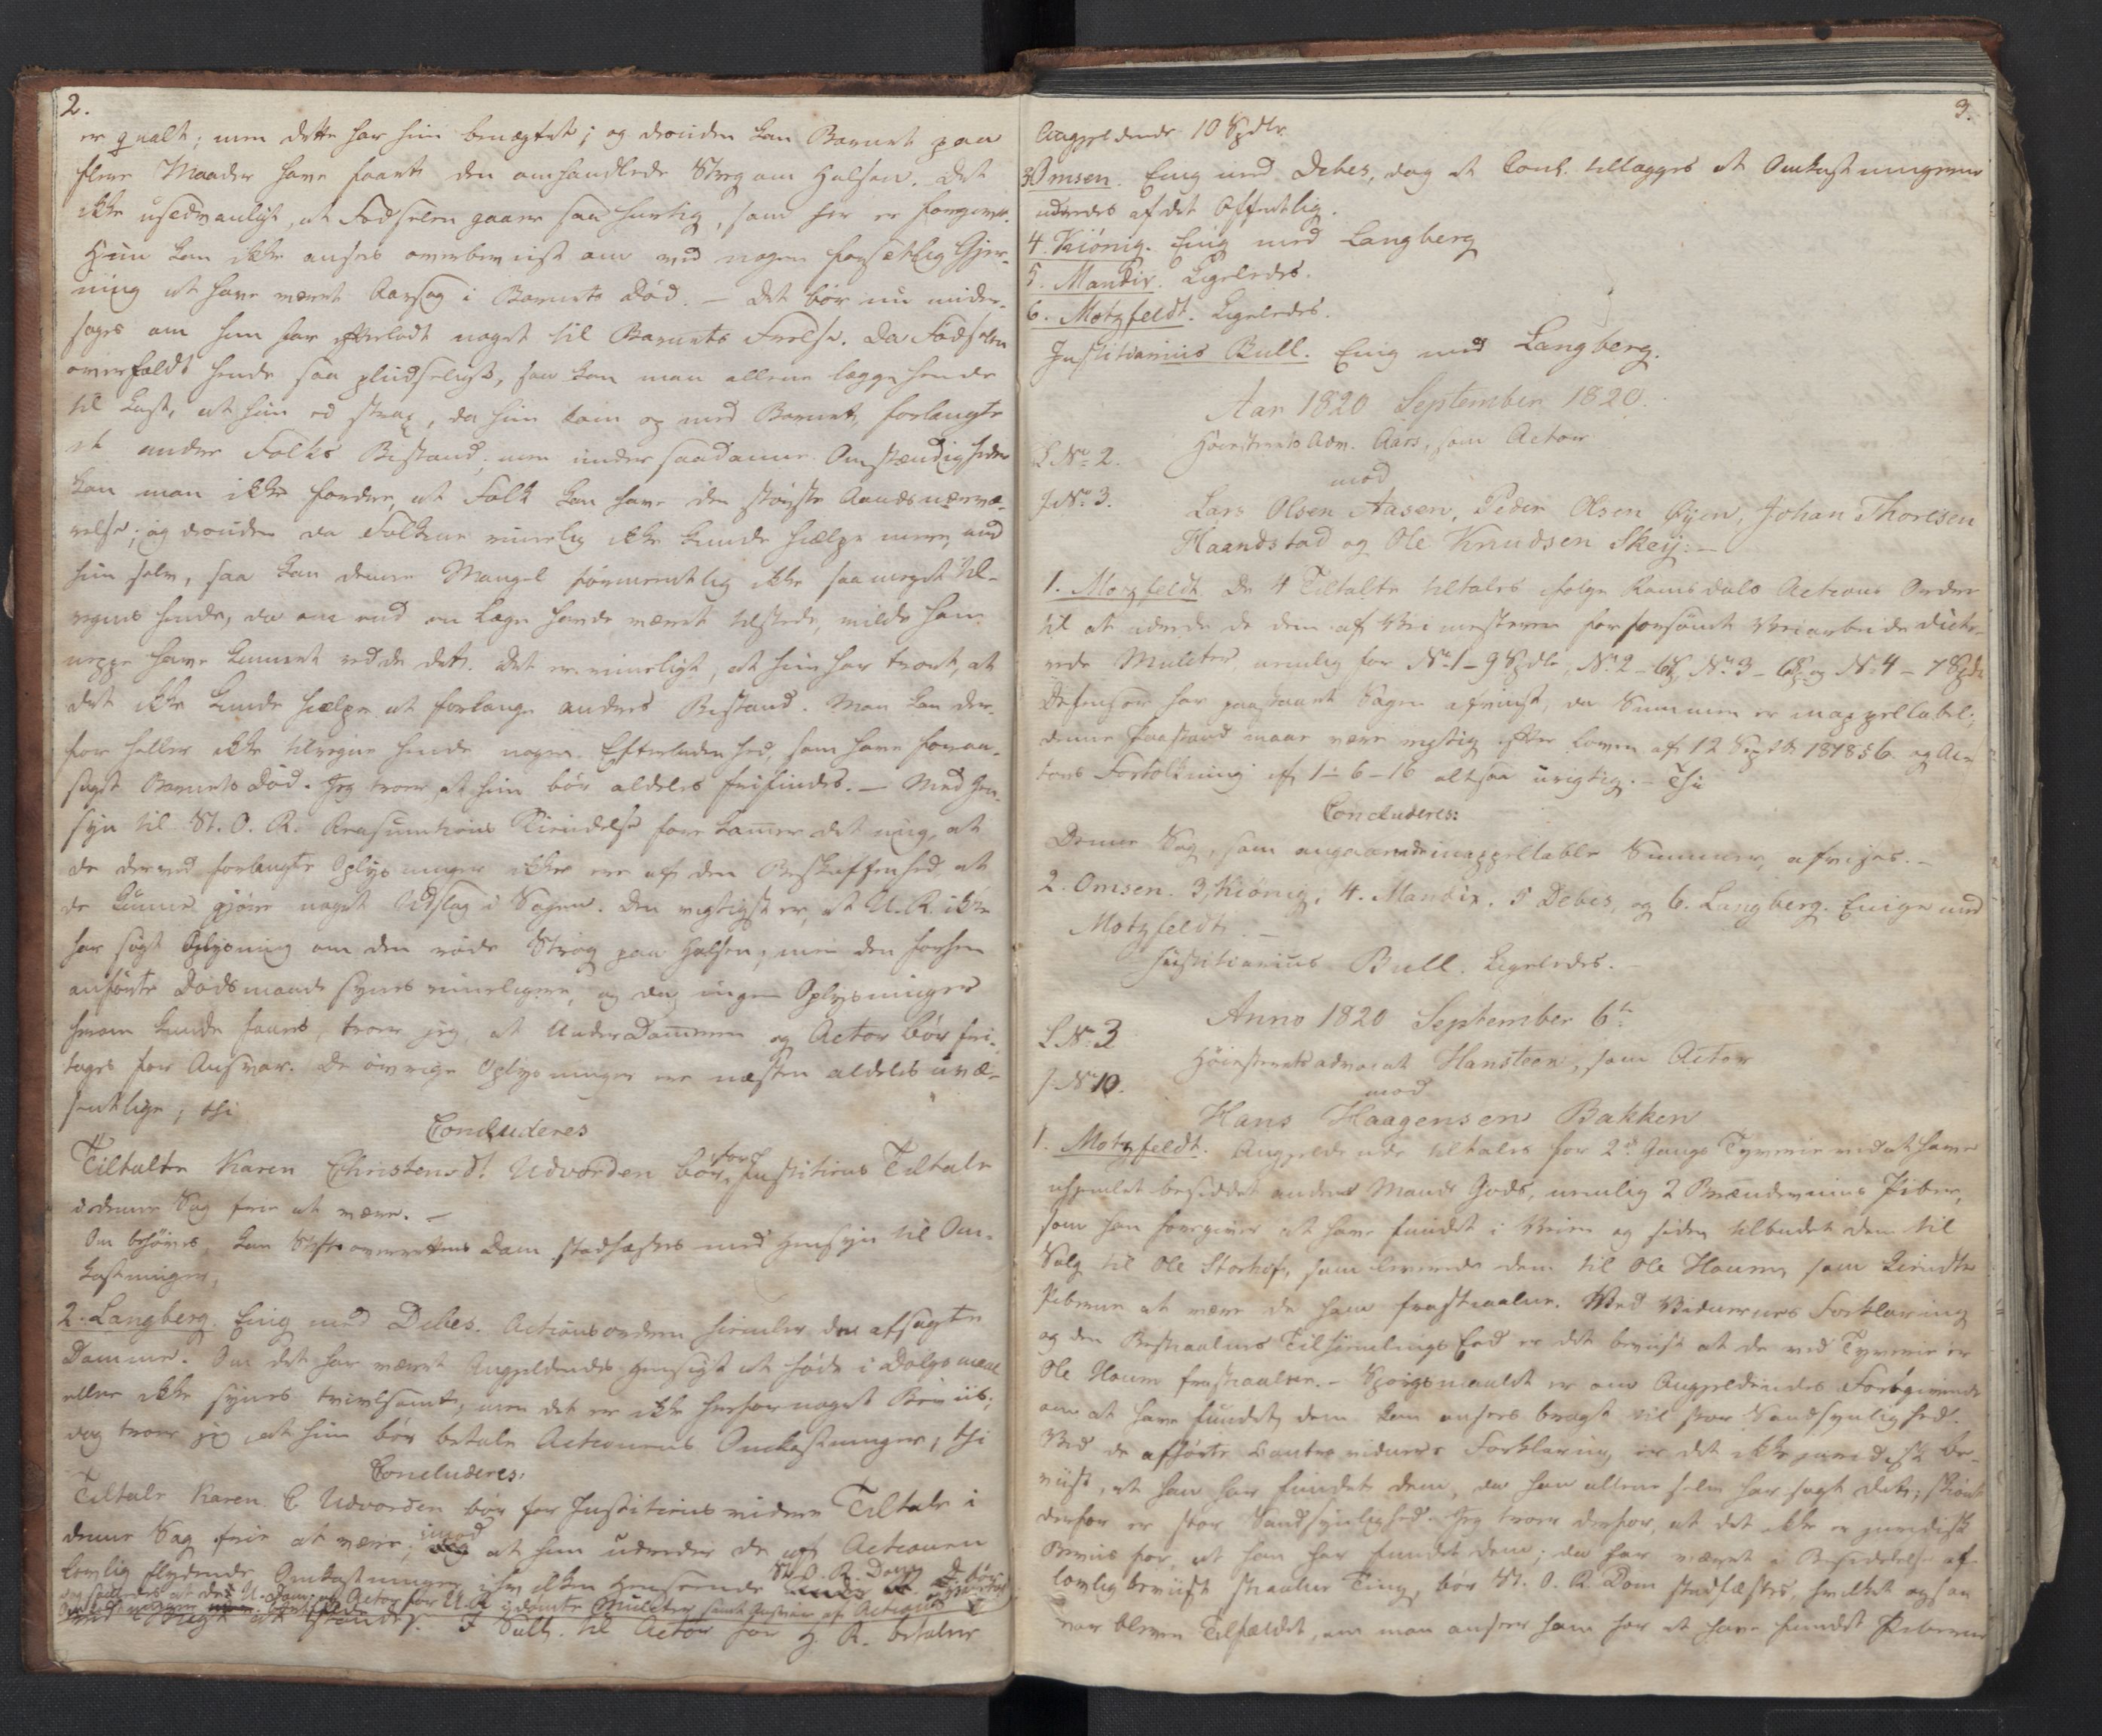 2.
er qvalt; men dette har hun benægtet; og desuden kan Barnet paa
flere Maader have faaet den omhandlede Streg om Halsen. Det
ikke usædvanligt, at Fødselen gaaer saa hurtig, som her er foregivet.
Hun kan ikke ansees overbeviist om ved nogen forsætlig Gjer-
ning at have været Aarsag i Barnets Død. – Det bør nu under-
søges om hun har efterladt noget til Barnets Frelse. Da Fødselen
overfaldt hende saa pludseligt, saa kan man allene lægge hende
til Last, at hun ei strax, da hun kom op med Barnet, forlangte
et andre Folks Bistand; men under saadanne Omstændigheder
kan man ikke fordre, at Folk kan have den største Aandsnærvæ-
relse; og desuden da Folkene rimelig ikke kunde hjælpe mere, end
hun selv, saa kan denne Mangel formentlig ikke saa meget til-
regnes hende, da om end en Læge havde været tilstede, vilde han
neppe have kunnet redde det. Det er rimeligt, at hun har troet, at
det ikke kunde hjælpe at forlange andres Bistand. Man kan der-
for heller ikke tilregne hende nogen Efterladenhed, som have foraar-
saget Barnets Død. Jeg troer, at hun bør aldeles frifindes. – Med Hen-
syn til St. O. R. Reasumtions Kiendelse forekommer det mig, at
de derved forlangte Oplysninger ikke ere af den Beskaffenhed, at
de kunne gjøre noget Udslag i Sagen. Den vigtigste er, at U. R. ikke
har søgt Oplysning om den røde Streg paa Halsen; men den forhen
anførte Dødsmaade synes rimeligere, og da ingen Oplysninger
herom kunde faaes, troer jeg, at Under Dommeren og Actor bør fri-
tages for Ansvar. De øvrige Oplysninger ere næsten aldeles uvæ-
sentlige; thi
Concluderes
Tiltalte Karen Christensd. Udvorden bør for Justitiens Tiltale
i denne Sag frie at være. –
Om behøves, kan Stiftsoverrettens Dom stadfæstes med Hensyn til Om-
kostningen,
2. Langberg. Enig med Debes. Actionsordren hiemler den afsagte
Domme. Om det har været Angjeldendes Hensigt at føde i Dølgsmaal
eller ikke synes tvivlsomt, men det er ikke herfor noget Beviis;
dog troer jeg, at hun bør betale Actionens Omkostninger; thi
Concluderes:
Tiltalte Karen C. Udvorden bør for Justitiens videre Tiltale i
denne Sag frie at være; imod at hun udreder de af Actionen
lovlig flydende Omkostninger, i hvilken Henseende St. O. R. Dom bør
I Sall. til Actor for H. R. betaler
3.
Angjeldende 10 Spdlr.
3 Omsen. Enig med Debes, dog at Concl. tillægges at Omkostningerne
udredes af det Offentlig.
4. Kiönig. Enig med Langberg
5. Mandix. Ligeledes.
6. Motzfeldt. Ligeledes.
Justitiarius Bull. Enig med Langberg.
Aar 1820 September 1820.
L No 2.
Höiesterets Adv. Aars, som Actor
mod
J. No. 3.
Lars Olsen Aasen, Peder Olsen Øyen, Johan Thoresen
Haandstad og Ole Knudsen Skeij: –
1. Motzfeldt. De 4 Tiltalte tiltales ifølge Romsdals Actions Ordre
til at udrede de dem af Veimesteren for forsømt Veiarbeide dicte-
rede Mulcter, nemlig for No. 1 – 9 Spdlr, No. 2 – 6 Sp, No. 3 – 6 Sp. og No. 4 – 7 Spd.
Defensor har paastaaet Sagen afviist, da Summen er inappellabel;
denne Paastand maae være rigtig efter Loven af 12 Septb 1818 § 6 og Ac-
tors Fortolkning af 1 – 6 – 16 altsaa urigtig. – Thi
Concluderes:
Denne Sag, som angaaende inappellable Summer, afvises. –
2. Omsen. 3, Kiönig, 4. Mandix, 5 Debes, og 6. Langberg. Enige med
Motzfeldt. –
Justitiarius Bull. Ligeledes. –
Anno 1820 September 6te
L No. 3
Höiesteretsadvocat Hansteen, som Actor
J. No 10.
mod
Hans Haagensen Bakken
1. Motzfeldt. Angjeldende tiltales for 2d Gangs Tyverie ved at have
uhiemlet besiddet anden Mands Gods, nemlig 2 Piber,
som han foregiver at have fundet i Veien og siden tilbudet dem til
Salg til Ole Storhof, som leverede dem til Ole Houm, som kiendte
Piberne at være de ham frastiaalne. Ved Vidnernes Forklaring
og den Bestiaalnes Tilhiemlings Eed er det beviist at de ved Tyverie er
Ole Houm frastiaalen. – Spörgsmaalet er om Angjeldendes Foregivende
om at have fundet dem kan ansees bragt til stor Sandsynlighed.
Ved de afhørte Contravidners Forklaring er det ikke juridisk be-
viist, at han har fundet dem, da han allene selv har sagt det; skiønt
derfor er stor Sandsynlighed. Jeg troer derfor, at det ikke er juridisk
Beviis for, at han har fundet dem; da har været i Besiddelse af
lovlig beviist stiaalne Ting, bør St. O. R. Dom stadfæstes, hvilket ogsaa
var bleven Tilfældet, om man anseer ham for at have fundet Piberne